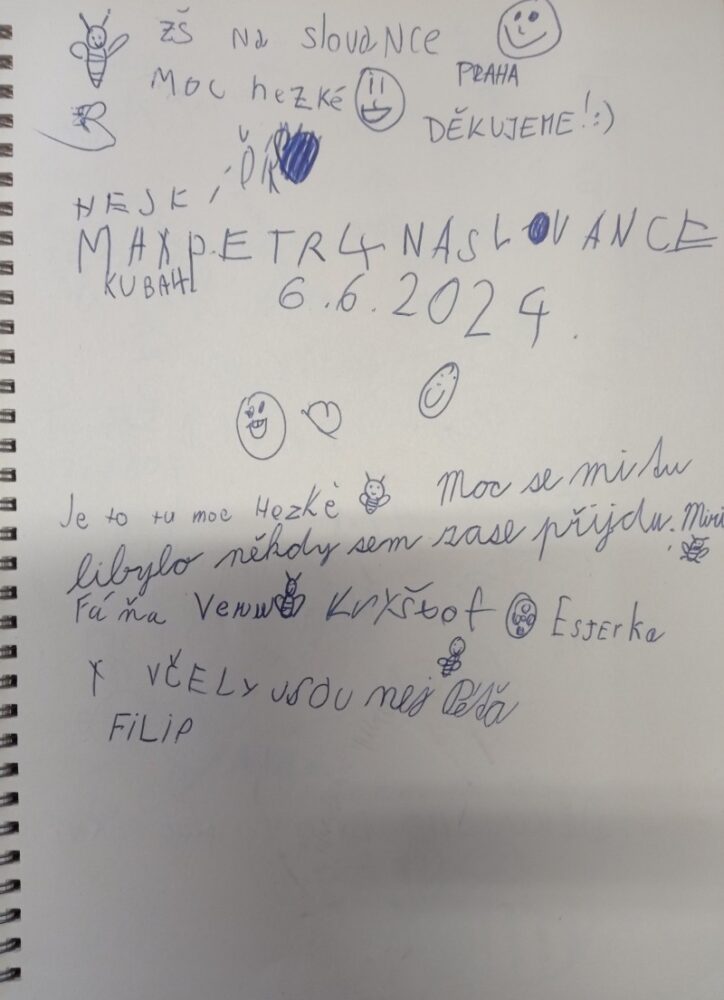 ZŠ Na slovaNce
PRAHA
Moc hezké
DĚKUJEME! :)
HEJK
MAXPETR4 NASLOVANCE
KUBAH
6.6.2024.
Je to tu moc Hezké Moc se mi tu
libylo někdy sem zase příjdu. Miri
Fáňa Venu Kryštof Esterka
VČELY JSOU nej Péťa
FiLip